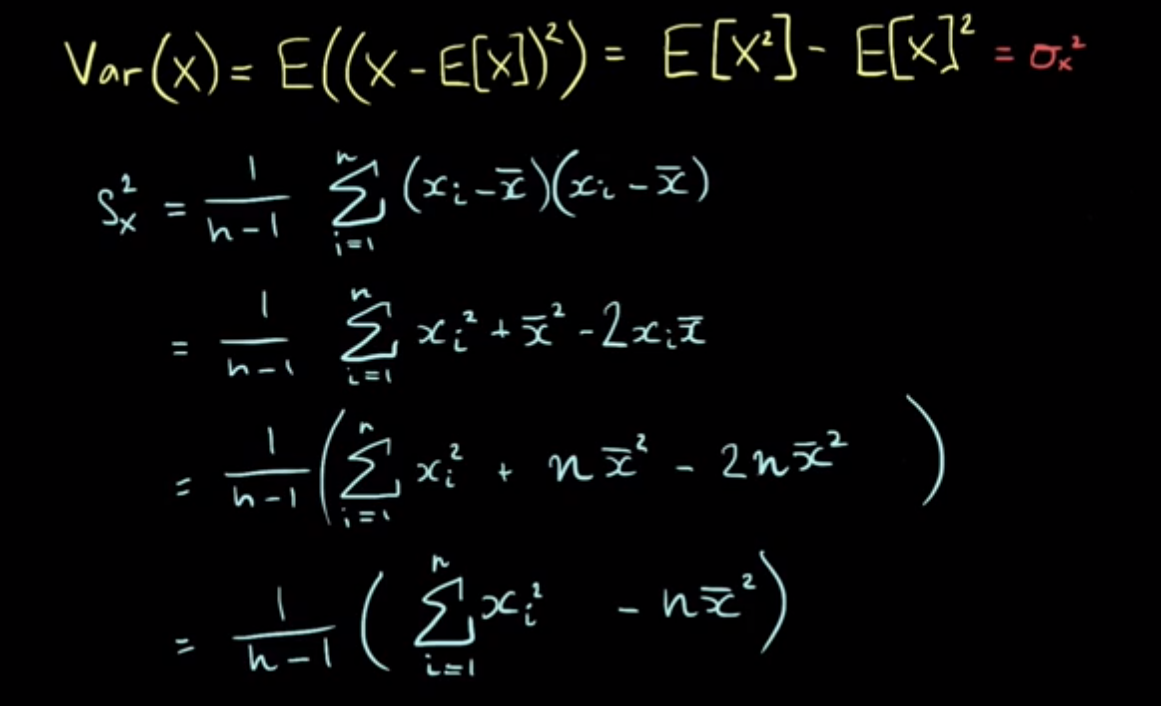 Var(X) = E((X - E[X])²) = E[X²] - E[X]² = σₓ²
Sₓ² = 1/(n-1) ∑ᵢ₌₁ⁿ (xᵢ - x̄)(xᵢ - x̄)
= 1/(n-1) ∑ᵢ₌₁ⁿ xᵢ² + x̄² - 2xᵢx̄
= 1/(n-1) (∑ᵢ₌₁ⁿ xᵢ² + nx̄² - 2nx̄²)
= 1/(n-1) (∑ᵢ₌₁ⁿ xᵢ² - nx̄²)